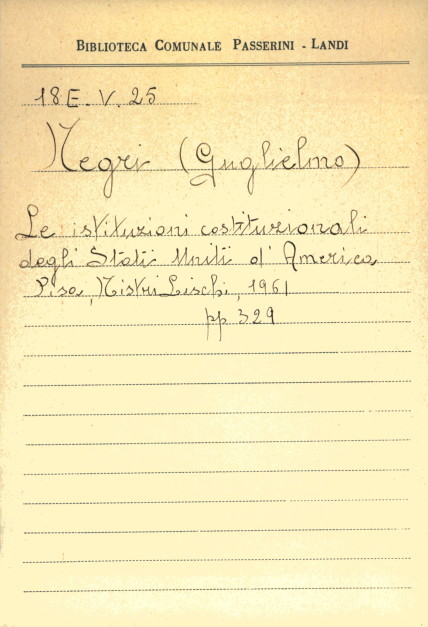 BIBLIOTECA COMUNALE PASSERINI - LANDI
18E. V. 25
Negri (Guglielmo)
Le istituzioni costituzionali
degli Stati Uniti d'America
Pisa, Nistri Lischi, 1961
pp 329